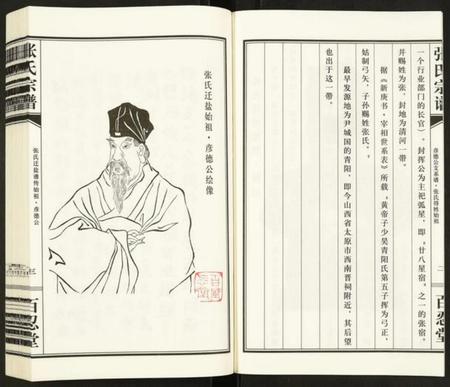 张氏宗谱
彦德公支系谱·张氏得姓始祖
二
百忍堂
一个行业部门的长官）。封挥公为主祀弧星，即“廿八星宿”之一的张宿。
并赐姓为张，封地为清河一带。
据《新唐书·宰相世系表》所载“黄帝子少昊青阳氏第五子挥为弓正，
始制弓矢，子孙赐姓张氏。”
最早发源地为尹城国的青阳，即今山西省太原市西南晋祠附近，其后望
也出于这一带。
张氏迁盐始祖·彦德公绘像
张氏宗谱
张氏迁盐谱传始祖·彦德公
三
百忍堂